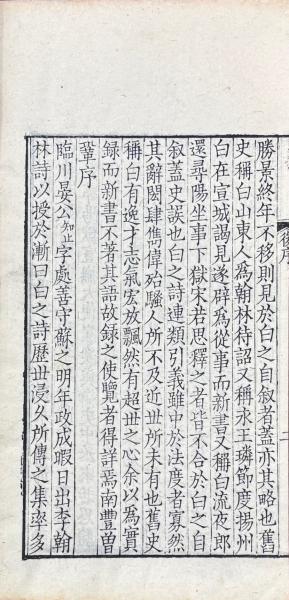 後序
二
勝景終年不移則見於白之自叙者蓋亦其略也舊
史稱白山東人為翰林待詔又稱永王璘節度揚州
白在宣城謁見遂辟為從事而新書又稱白流夜郎
還尋陽坐事下獄宋若思釋之者皆不合於白之自
叙蓋史誤也白之詩連類引義雖中於法度者寡然
其辭閎肆儁偉殆騷人所不及近世所未有也舊史
稱白有逸才志氣宏放飄然有超世之心余以為實
錄而新書不著其語故錄之使覽者得詳焉南豐曾
鞏序
臨川晏公知止字處善守蘇之明年政成暇日出李翰
林詩以授於漸曰白之詩歷世浸久所傳之集率多